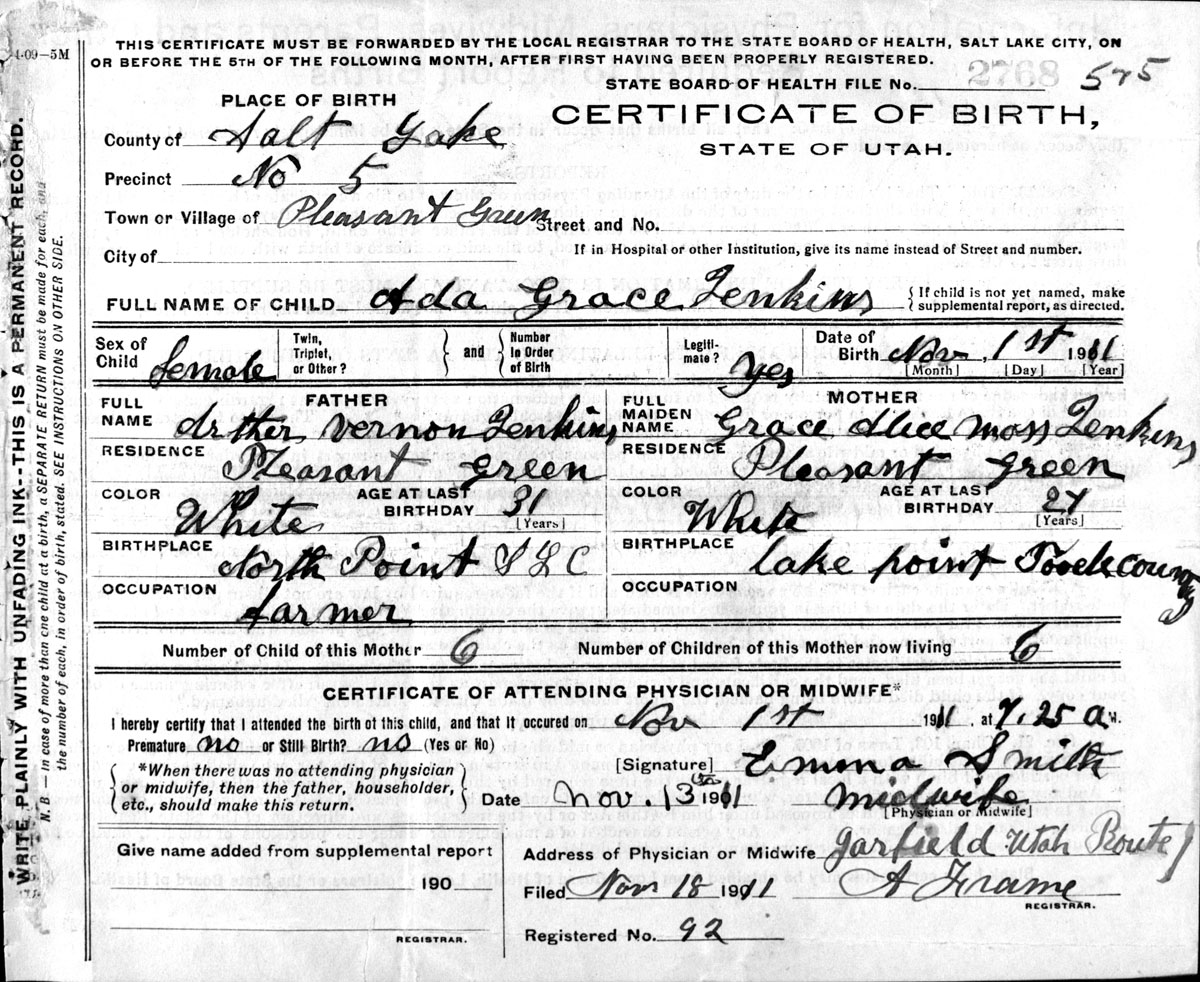 4-09-5M
THIS CERTIFICATE MUST BE FORWARDED BY THE LOCAL REGISTRAR TO THE STATE BOARD OF HEALTH, SALT LAKE CITY, ON
OR BEFORE THE 5TH OF THE FOLLOWING MONTH, AFTER FIRST HAVING BEEN PROPERLY REGISTERED.
2768 575
STATE BOARD OF HEALTH FILE No.
PLACE OF BIRTH
CERTIFICATE OF BIRTH,
STATE OF UTAH.
County of Salt Lake
Precinct No 5
Town or Village of Pleasant Green Street and No.
City of
If in Hospital or other Institution, give its name instead of Street and number.
FULL NAME OF CHILD Ada Grace Jenkins { If child is not yet named, make
supplemental report, as directed.
Sex of Child female
Twin, Triplet, or Other? } and { Number in Order of Birth
Legiti-mate? yes
Date of Birth Nov. 1st 1911
[Month] [Day] [Year]
FATHER
FULL NAME Arther Vernon Jenkins
RESIDENCE Pleasant Green
COLOR White AGE AT LAST BIRTHDAY 31
[Years]
BIRTHPLACE North Point S L C
OCCUPATION farmer
MOTHER
FULL MAIDEN NAME Grace Alice Moss Jenkins
RESIDENCE Pleasant Green
COLOR White AGE AT LAST BIRTHDAY
[Years]
BIRTHPLACE lake point Tooele county
OCCUPATION
Number of Child of this Mother 6 Number of Children of this Mother now living 6
CERTIFICATE OF ATTENDING PHYSICIAN OR MIDWIFE*
I hereby certify that I attended the birth of this child, and that it occured on Nov 1st 1911, at 7.25 a M.
Premature, no or Still Birth? no (Yes or No)
{ *When there was no attending physician
or midwife, then the father, householder,
etc., should make this return. }
[Signature] Emma Smith
Date Nov. 13th 1911 Midwife
[Physician or Midwife]
Give name added from supplemental report
190
REGISTRAR.
Address of Physician or Midwife Garfield Utah Route 1
Filed Nov 18 1911 A Frame
REGISTRAR.
Registered No. 92
WRITE PLAINLY WITH UNFADING INK--THIS IS A PERMANENT RECORD.
N. B.—in case of more than one child at a birth, a SEPARATE RETURN must be made for each, and
the number of each, in order of birth, stated. SEE INSTRUCTIONS ON OTHER SIDE.